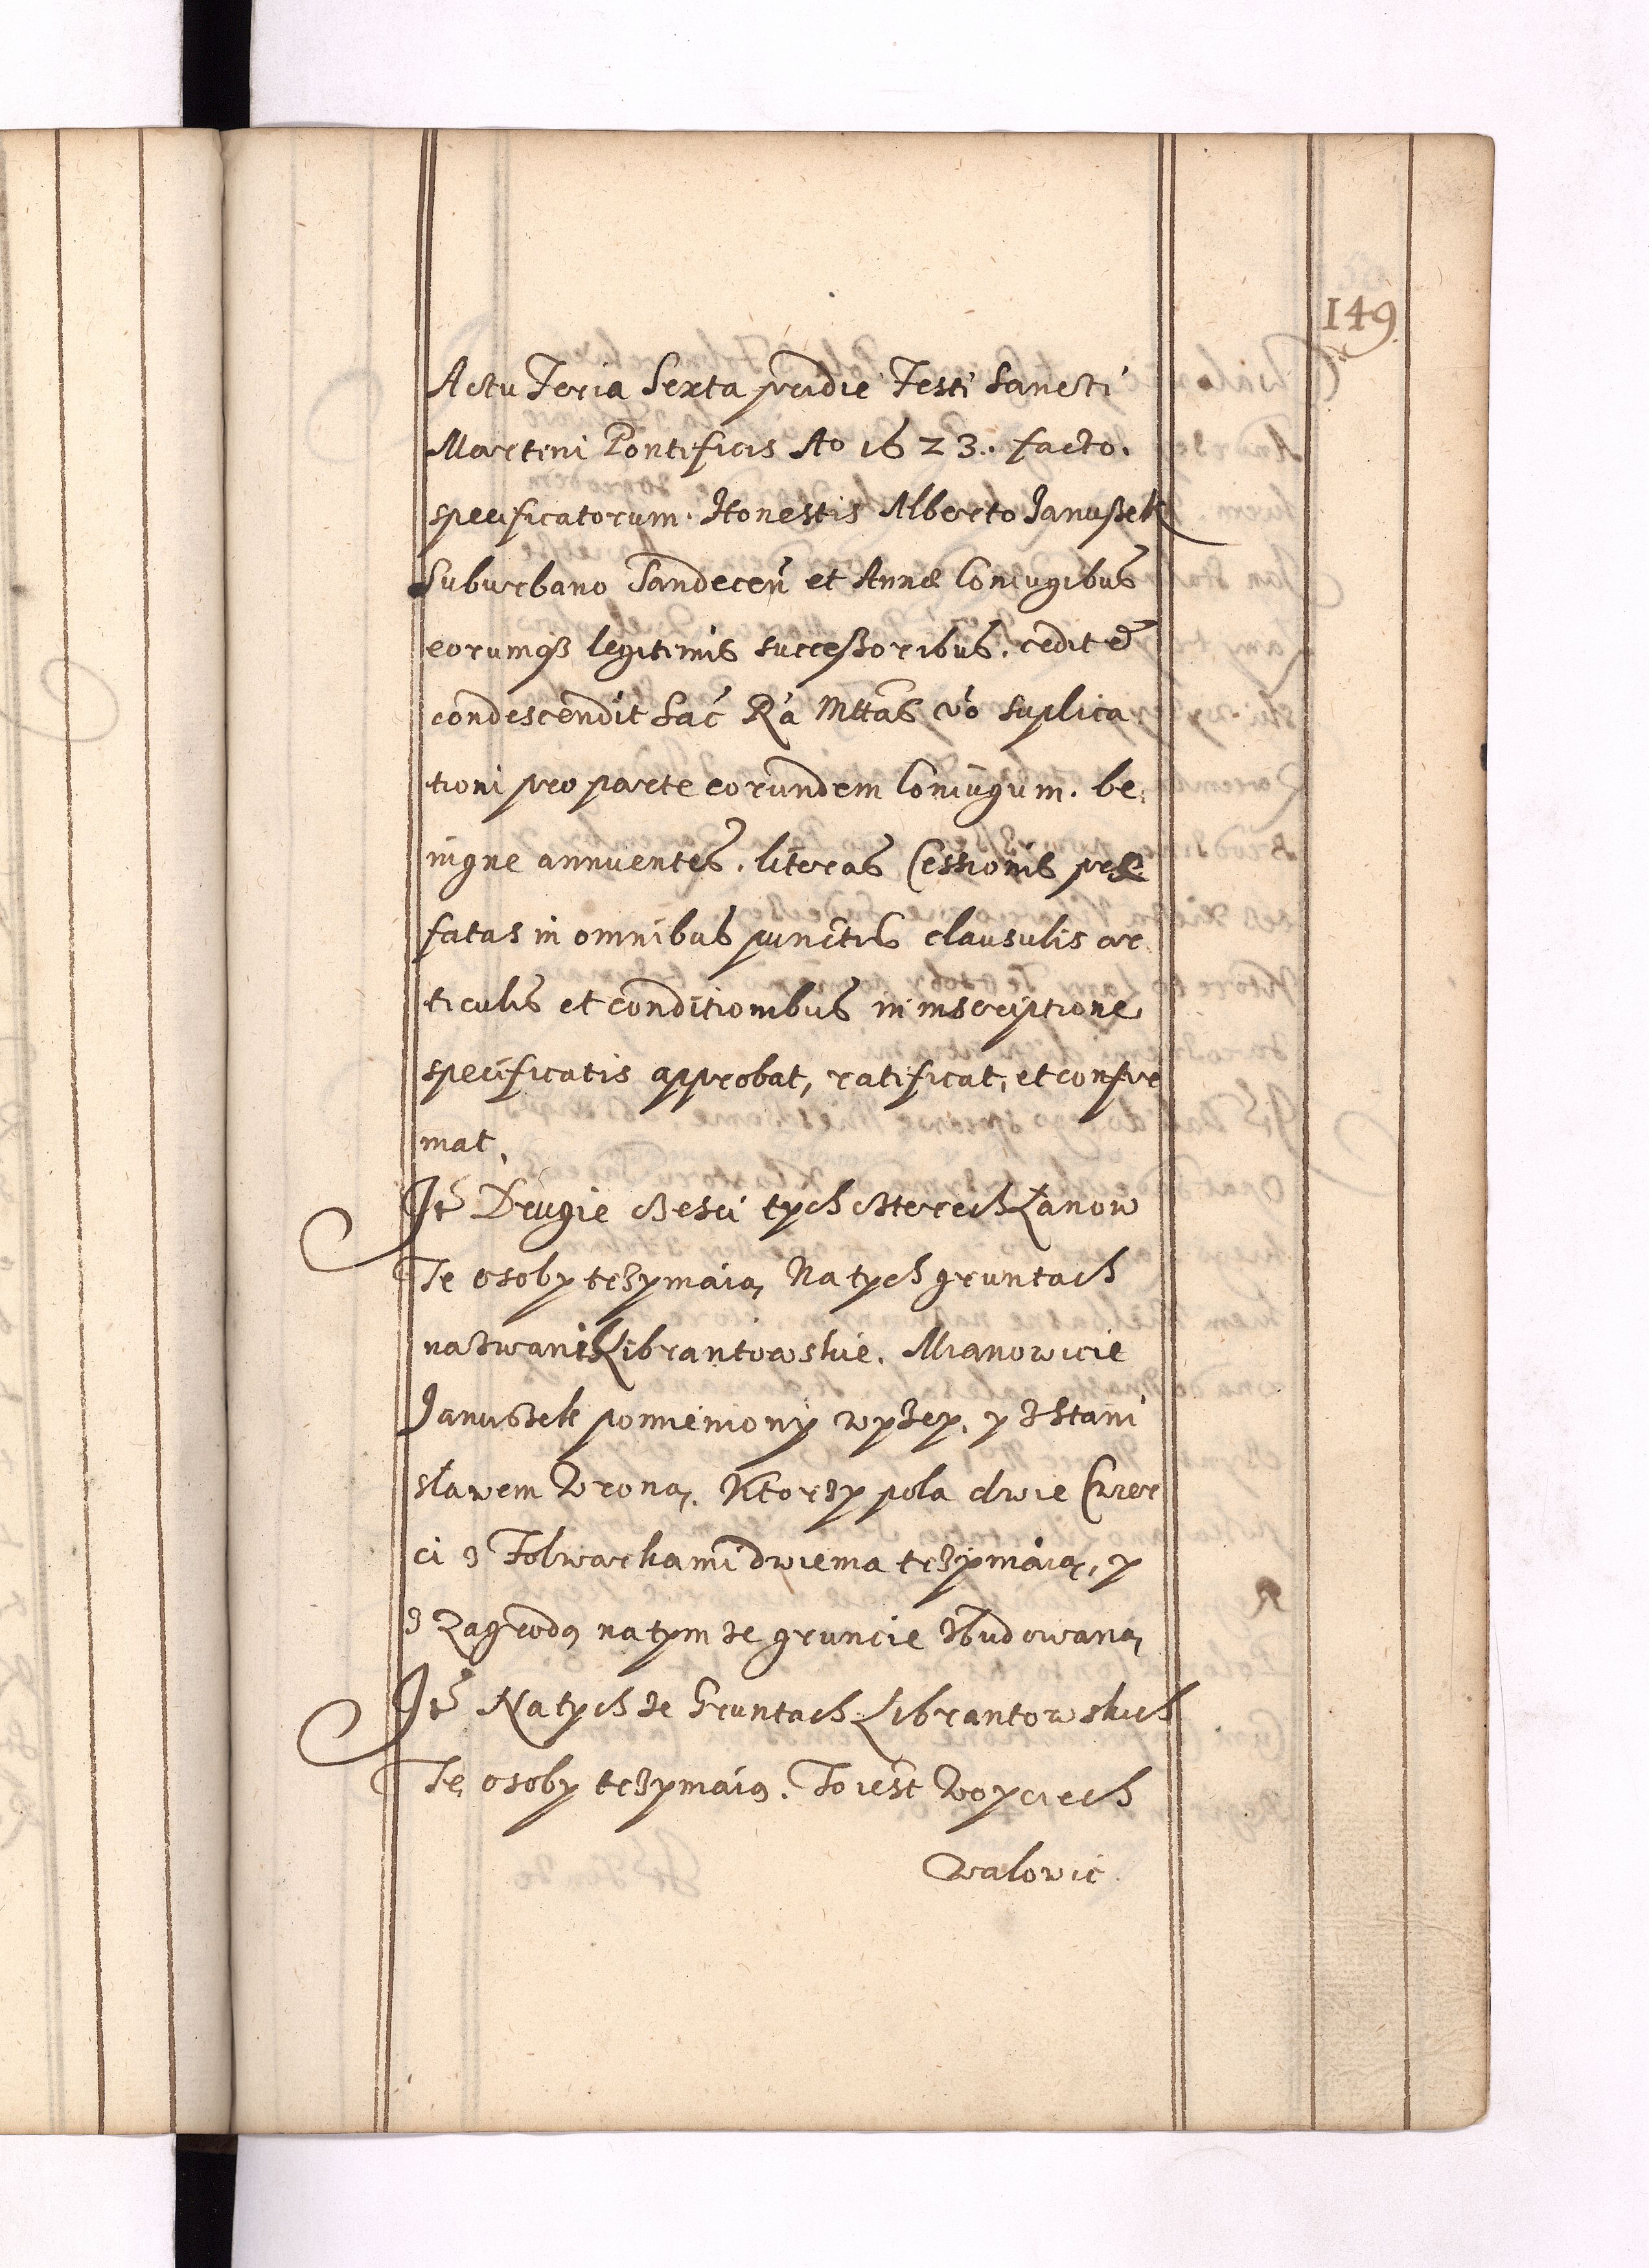 149
Actu Feria Sexta pridie Festi Sancti
Martini Pontificis Ao 1623. facto.
specificatorum. Honestis Alberto Janußek
Suburbano Sandecen̄ et Annæ Coniugibus
eorumqꝫ legitimis succeßoribus. cedit et
condescendit Sac̄ Rā Mttas v̄o suplica
tioni pro parte eorundem Coniugum. be,
nigne annuentes. literas Cessionis præ
fatas in omnibus punctis clausulis ar
ticulis et conditionibus in inscriptione
specificatis approbat, ratificat, et confir
mat.
Jt Drugie cżesci tych cżterech Łanow
Te osoby trzymáią Na tych gruntach
nazwani Librantowskie. Mianowicie
Januszek pomieniony wyżey, y z Stani
sławem Wroną. Ktorzy pola dwie Czwer
ci z Folwarkami dwiema trzymáią, y
z Zagrodą na tym że gruncie zbudowaną
Jt Na tych że Gruntach Librantowskich
Te osoby trzymáią. To iest Woyciech
Walowic